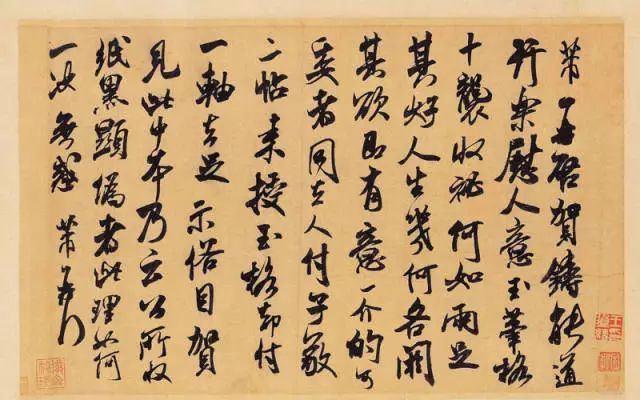 芾再啓賀鑄能道
行樂慰人意玉筆格
十襲收祕何如兩足
其好人生幾何各闕
其欲即有意一介的可
委者同去人付子敬
二帖來授玉格却付
一軸去足示俗目賀
見此中本乃云公所收
紙黑顯偽者此理如何
一決無惑 芾頓首